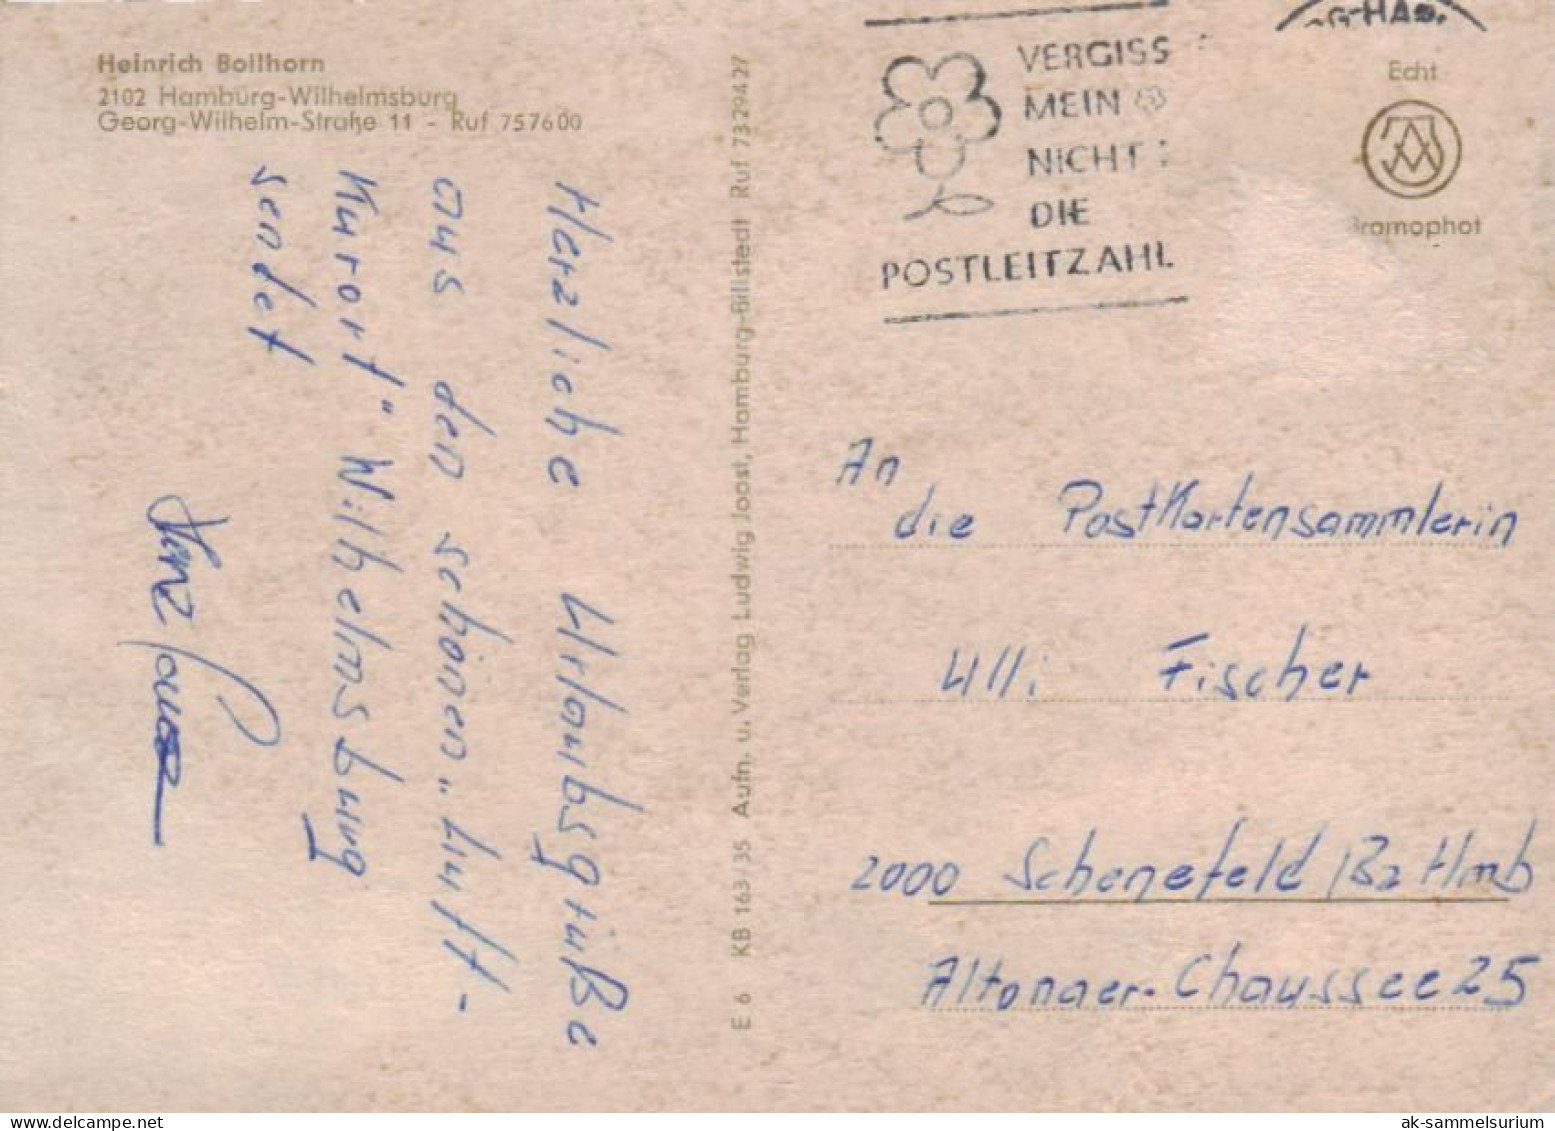 Heinrich Bollhorn
2102 Hamburg-Wilhelmsburg
Georg-Wilhelm-Straße 11 - Ruf 757600
Herzliche Urlaubsgrüße
aus den schönen „Luft-
Kurort" Wilhelmsburg
sendet
E 6 KB 163/35 Aufn. u. Verlag Ludwig Joost, Hamburg-Billstedt Ruf 7329427
VERGISS
MEIN
NICHT
DIE
POSTLEITZAHL
Echt
Bromophot
An
die Postkartensammlerin
Ulli Fischer
2000 Schenefeld / Bz Hmb
Altonaer-Chaussee 25
ak-sammelsurium